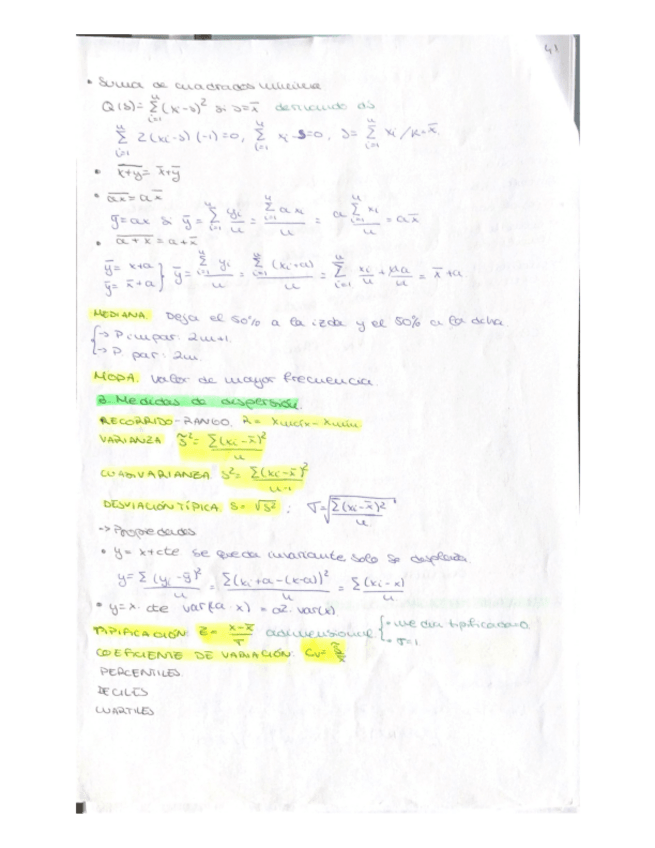 41
• Suma de cuadrados mínima
Q(s)= Σ(xi-s)² si s=x̄ derivando ds
Σ 2(xi-s)(-1)=0, Σ xi-s=0, s= Σ xi/n=x̄
• x+y = x̄+ȳ
• ax = ax̄
y=ax si ȳ = Σ yi/n = Σ a xi/n = a Σ xi/n = ax̄
• a+x = a+x̄
ȳ= x+a
ȳ= x̄+a} ȳ = Σ yi/n = Σ (xi+a)/n = Σ xi/n + na/n = x̄+a
MEDIANA: Deja el 50% a la izda y el 50% a la dcha
{→ P impar: 2m+1.
→ P. par: 2m.
MODA: valor de mayor frecuencia.
3. Medidas de dispersión.
RECORRIDO-RANGO. R= xmáx-xmín.
VARIANZA S̃²= Σ(xi-x̄)²/n
CUASIVARIANZA S²= Σ(xi-x̄)²/n-1
DESVIACIÓN TÍPICA: S= √S² ; σ=√Σ(xi-x̄)²/n
→ Propiedades
• y= x+cte se queda invariante solo se desplaza.
y= Σ(yi-ȳ)²/n = Σ(xi+a-(x-a))²/n = Σ(xi-x)/n
• y=x·cte var(a·x) = a2·var(x)
TIPIFICACIÓN: Z= x-x̄/σ adimensional {• media tipificada=0
• σ=1
COEFICIENTE DE VARIACIÓN: Cv= S̃/x̄
PERCENTILES
DECILES
CUARTILES